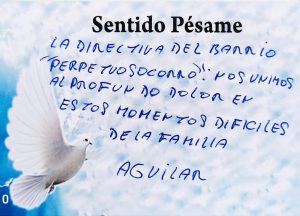 Sentido Pésame
LA DIRECTIVA DEL BARRIO
"PERPETUO SOCORRO": NOS UNIMOS
AL PROFUNDO DOLOR EN
ESTOS MOMENTOS DIFICILES
DE LA FAMILIA
AGUILAR
0